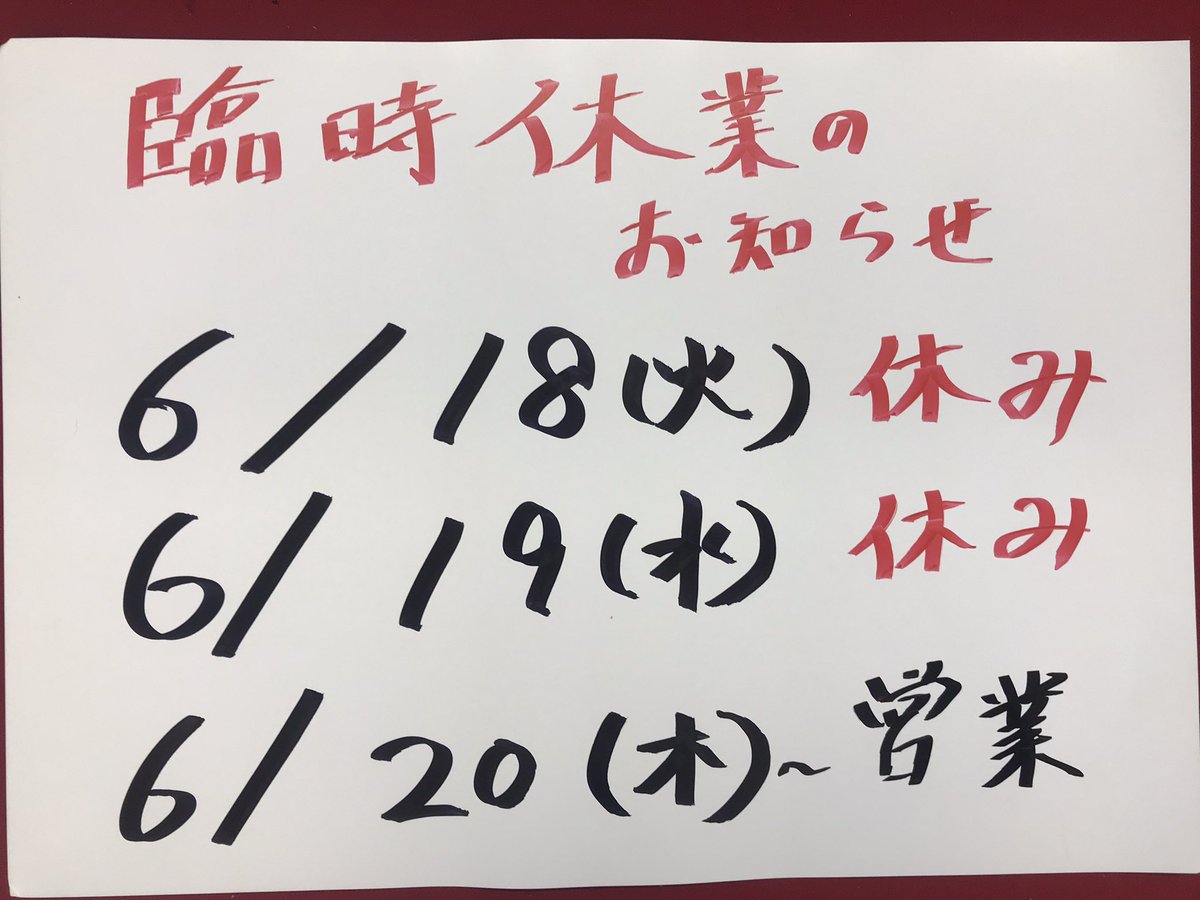 臨時休業の
お知らせ
6/18(火) 休み
6/19(水) 休み
6/20(木)~営業